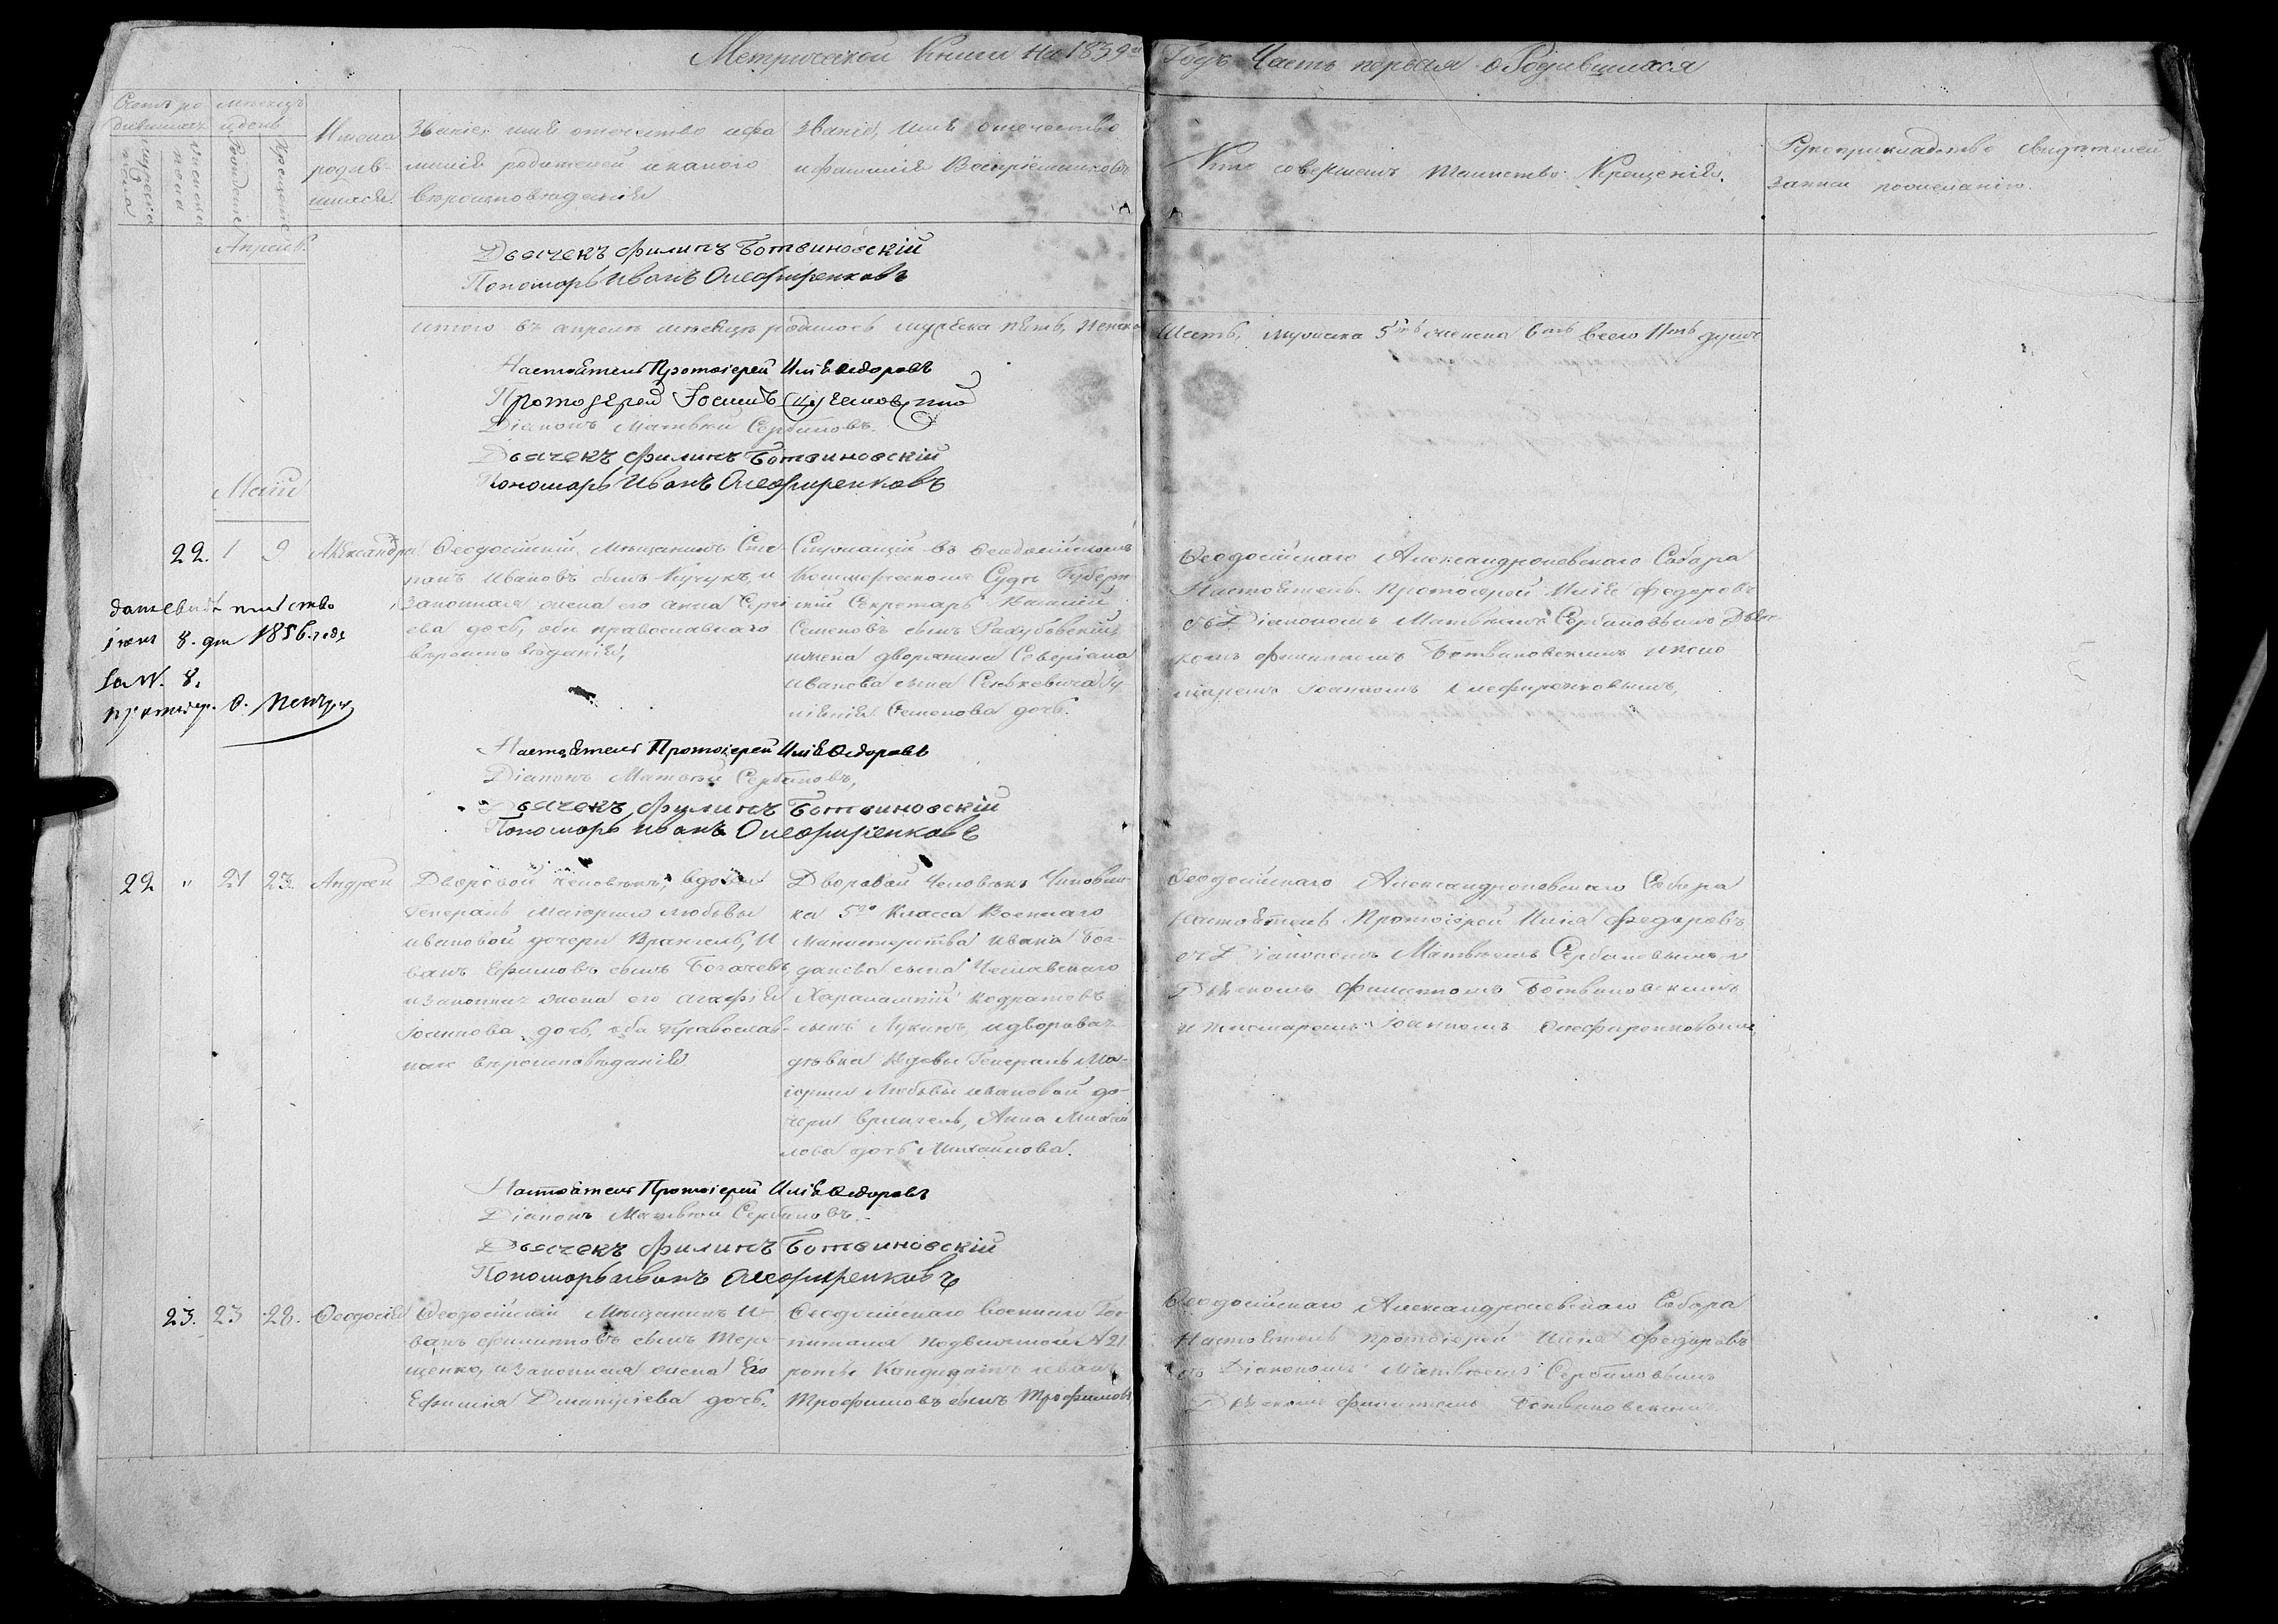 Метрической Книги на 1839й Годъ Часть первая о Родившихся
Счетъ ро-
дившихся
мужеска
пола
женска
пола
месяцъ
и день
Рожденіе
Крещеніе
Имена
родив-
шихся.
Званіе, имя отечество и фа
милія родителей и какого
вероисповеданія
Званіе, Имя отечество
и фамилія Воспріемниковъ
Кто совершалъ таинство Крещенія.
Рукоприкладство свидетелей
записи по желанію.
Апрель.
Дьячекъ Филипъ Ботвиновскій
Пономарь Иванъ Олефиренковъ
итого въ апреле месяце родилось мужеска пять, женска
Шесть, мужеска 5ть женска 6ть всего 11ть душъ
Настоятель Протоіерей Илія Ѳедоровъ
Протоіерей
Діаконъ Матвей Сербиновъ.
Дьячекъ Филипъ Ботвиновскій
Пономарь Иванъ Олефиренковъ
Маій
22. 1 9 Александра
Ѳеодосійскій Мещанинъ Сте-
панъ Ивановъ сынъ Кучукъ, и
Законная жена его Анна Серги
ева дочь, оба православнаго
вероисповеданія,
Служащій въ Ѳеодосійскомъ
Коммерческомъ Суде Губерн
скій Секретарь Василій
Семеновъ сынъ
и жена дворянина Северіана
Иванова сына Сенькевича
Семенова дочь.
Ѳеодосійскаго Александроневскаго Собора
Настоятель Протоіерей Илія Федоровъ
съ Діакономъ Матвеемъ Сербиновымъ Дьяч-
комъ Филиппомъ Ботвиновскимъ и поно-
маремъ Іоанномъ Олефиренковымъ,
дано свидетельство
8. дня 1856. года
за N. 8.
Настоятель Протоіерей Илія Ѳедоровъ
Діаконъ Матвей Сербиновъ,
Дьячекъ Филипъ Ботвиновскій
Пономарь Иванъ Олефиренковъ
22 " 21 23. Андрей
Дворовой человекъ, вдовы
Генералъ Маіорши Любовы
Ивановой дочери Врангель, И
ванъ Ефимовъ сынъ Богачевъ
и законная жена его Агафія
Іоаннова дочь, оба Православ-
наго вероисповеданія.
Дворовой Человекъ Чиновни-
ка 5го Класса Военнаго
Министерства Ивана Бог-
данова сына
Харалампій Кодратовъ
сынъ Лукинъ, и дворовая
девка Вдовы Генералъ Ма-
іорши Любовы Ивановой до-
чери Врангель, Анна Михай
лова дочь Михайлова.
Ѳеодосійскаго Александроневскаго Собора
Настоятель Протоіерей Илія Федоровъ
съ Діакономъ Матвеемъ Сербиновымъ,
Дьячкомъ Филиппомъ Ботвиновскимъ
и Пономаремъ Іоанномъ Олефиренковымъ
Настоятель Протоіерей Илія Ѳедоровъ
Діаконъ Матвей Сербиновъ.
Дьячекъ Филипъ Ботвиновскій
Пономарь Иванъ Олефиренковъ
23. 23 28. Ѳеодосія
Ѳеодосійскій Мещанинъ И-
ванъ Филиповъ сынъ Тере-
щенко, и Законная жена Его
Ефимія Димитріева дочь.
Ѳеодосійскаго военнаго Гос-
питаля подвижной N 21
роты Кандидатъ Иванъ
Трофимовъ сынъ Трофимовъ
Ѳеодосійскаго Александроневскаго Собора
Настоятель протоіерей Илія Федоровъ
съ Діакономъ Матвеемъ Сербиновымъ
Дьячкомъ Филиппомъ Ботвиновскимъ